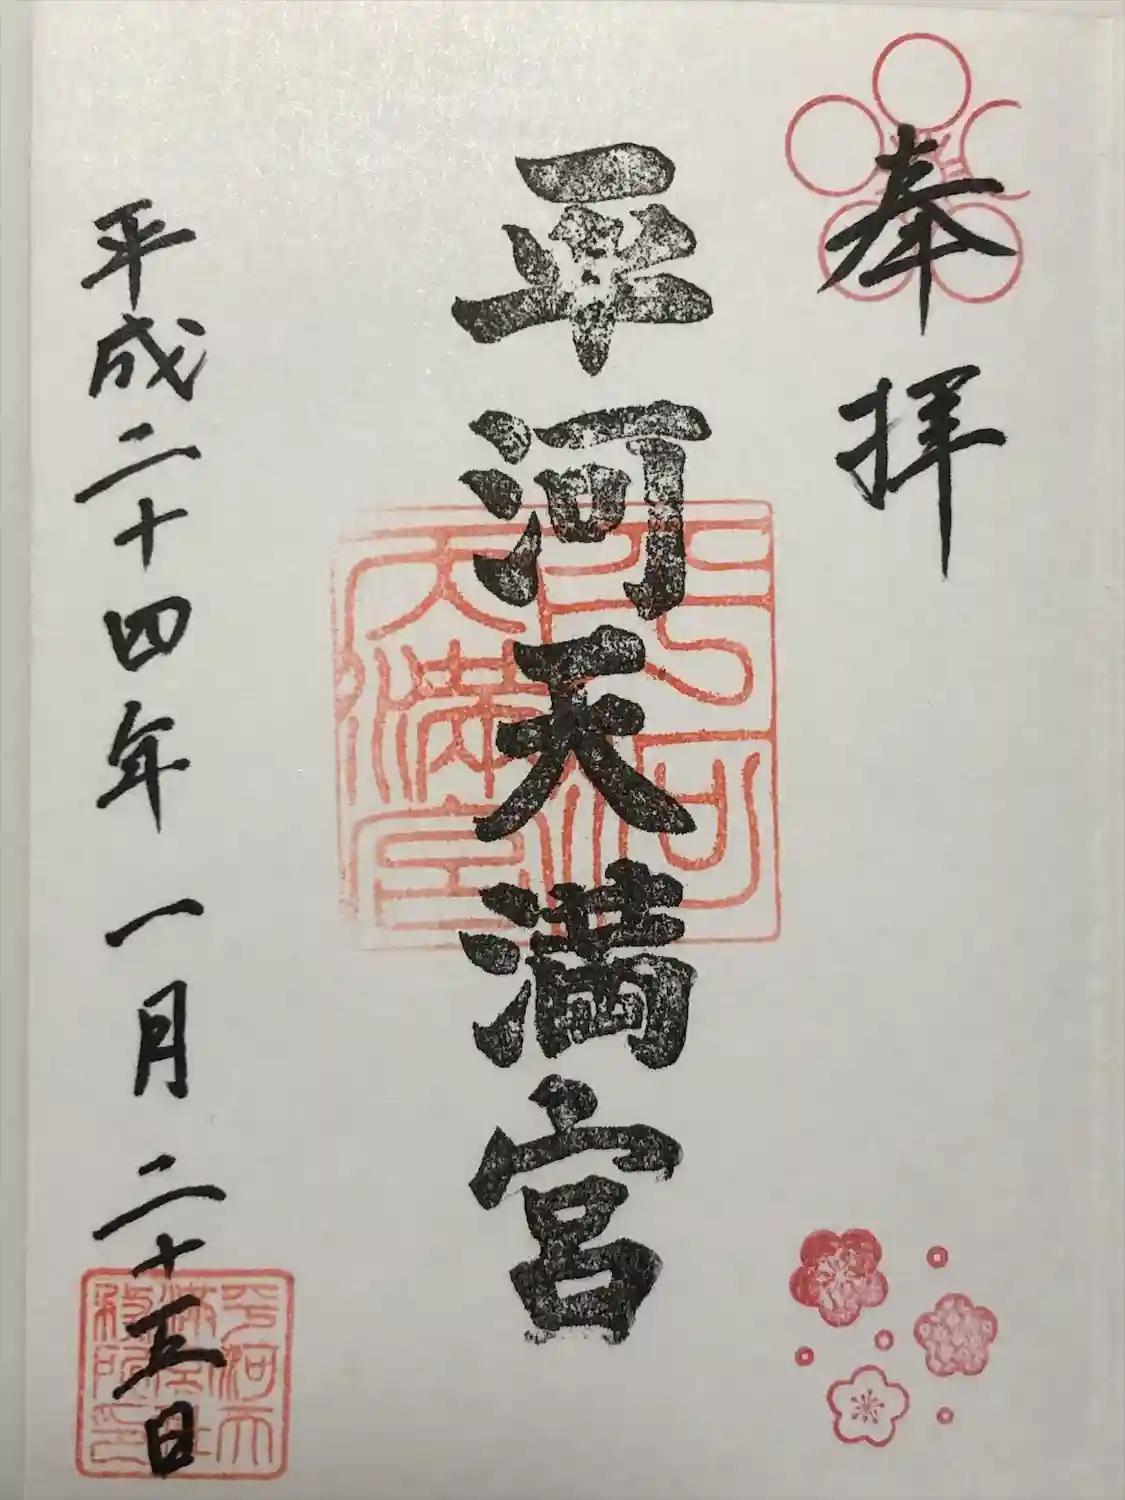 奉拝
平河天満宮
平河天満宮
平成二十四年一月二十五日
平河天満宮社務所之印